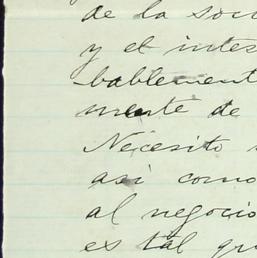 de la soci
y el inte
bablement
mente de
Necesito
asi como
al negocio
es tal que